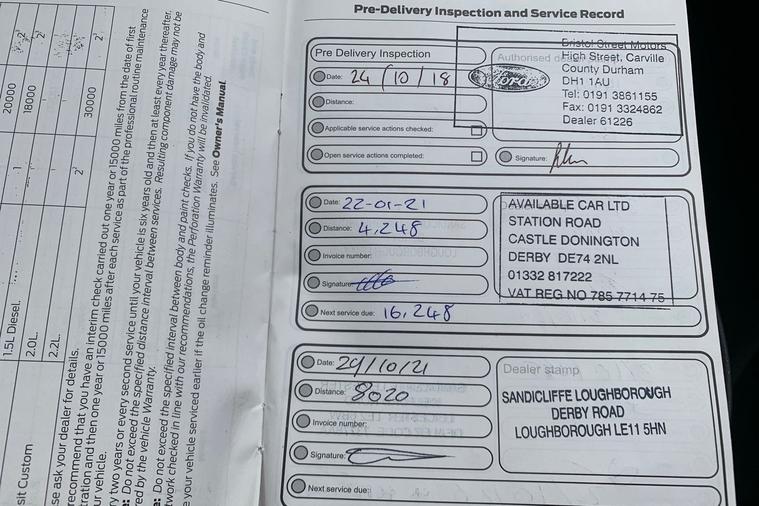 Pre-Delivery Inspection and Service Record
Pre Delivery Inspection
Date: 24/10/18
Distance:
Applicable service actions checked:
Open service actions completed:
Authorised
Bristol Street Motors
High Street, Carville
County Durham
DH1 1AU
Tel: 0191 3861155
Fax: 0191 3324862
Dealer 61226
Ford
Signature:
Date: 22-01-21
Distance: 4,248
Invoice number:
Signature:
Next service due: 16,248
AVAILABLE CAR LTD
STATION ROAD
CASTLE DONINGTON
DERBY DE74 2NL
01332 817222
VAT REG NO 785 7714 75
Date: 29/10/21
Distance: 8020
Invoice number:
Signature:
Next service due:
Dealer stamp
SANDICLIFFE LOUGHBOROUGH
DERBY ROAD
LOUGHBOROUGH LE11 5HN
20000
18000
30000
1.5L Diesel.
2.0L.
2.2L.
sit Custom
se ask your dealer for details.
recommend that you have an interim check carried out one year or 15000 miles from the date of first
tration and then one year or 15000 miles after each service as part of the professional routine maintenance
ur vehicle.
ry two years or every second service until your vehicle is six years old and then at least every year thereafter.
e: Do not exceed the specified distance interval between services. Resulting component damage may not be
red by the vehicle Warranty.
e: Do not exceed the specified interval between body and paint checks. If you do not have the body and
twork checked in line with our recommendations, the Perforation Warranty will be invalidated.
e your vehicle serviced earlier if the oil change reminder illuminates. See Owner's Manual.